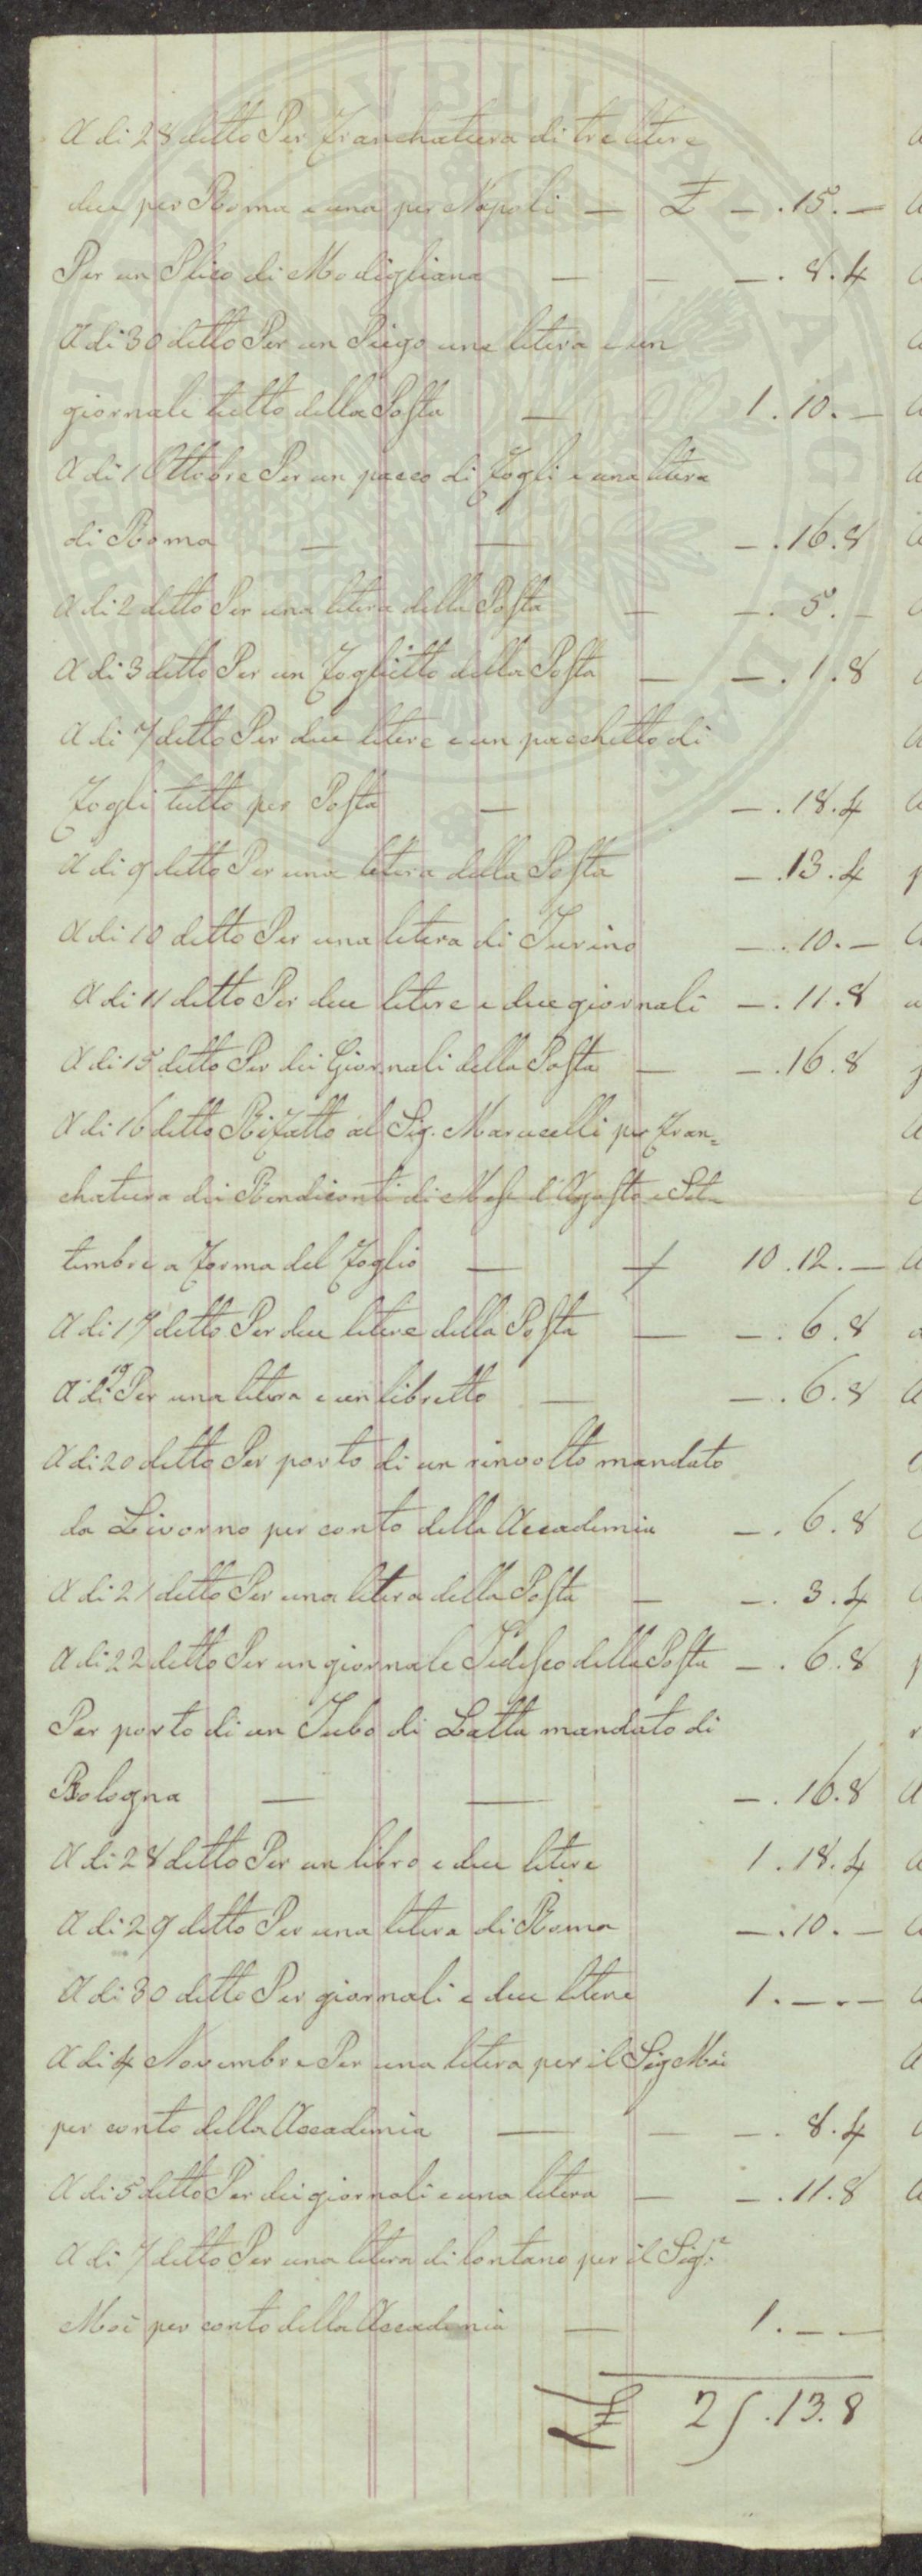 A di 28 detto Per Franchatura di tre litere
due per Roma e una per Napoli — £ —.15.—
Per un Plico di Modigliana — — —.8.4
A di 30 detto Per un Piego una litera e un
giornale tutto della Posta — 1.10.—
A di 1 Ottobre Per un pacco di Fogli e una litera
di Roma — — —.16.8
A di 2 detto Per una litera della Posta — —.5.—
A di 3 detto Per un Foglietto della Posta — —.1.8
A di 7 detto Per due litere e un pacchetto di
Fogli tutto per Posta — —.18.4
A di 9 detto Per una litera della Posta —.13.4
A di 10 detto Per una litera di Turino —.10.—
A di 11 detto Per due litere e due giornali —.11.8
A di 15 detto Per dei Giornali della Posta — —.16.8
A di 16 detto Rifatto al Sig. Marucelli per Fran=
chatura dei Rendiconti di Mesi d'Agosto e Set=
tembre a Forma del Foglio — 10.12.—
A di 17 detto Per due litere della Posta — —.6.8
A di 19 Per una litera e un libretto — —.6.8
A di 20 detto Per porto di un rinvolto mandato
da Livorno per conto della Accademia —.6.8
A di 21 detto Per una litera della Posta — —.3.4
A di 22 detto Per un giornale Tedesco della Posta —.6.8
Per porto di un Tubo di Latta mandato di
Bologna — — —.16.8
A di 28 detto Per un libro e due litere 1.18.4
A di 29 detto Per una litera di Roma —.10.—
A di 30 detto Per giornali e due litere 1.—.—
A di 4 Novembre Per una litera per il Sig Moi
per conto della Accademia — — —.8.4
A di 5 detto Per dei giornali e una litera — —.11.8
A di 7 detto Per una litera di lontano per il Sigr
Moi per conto della Accademia — 1.—.—
£ 25.13.8